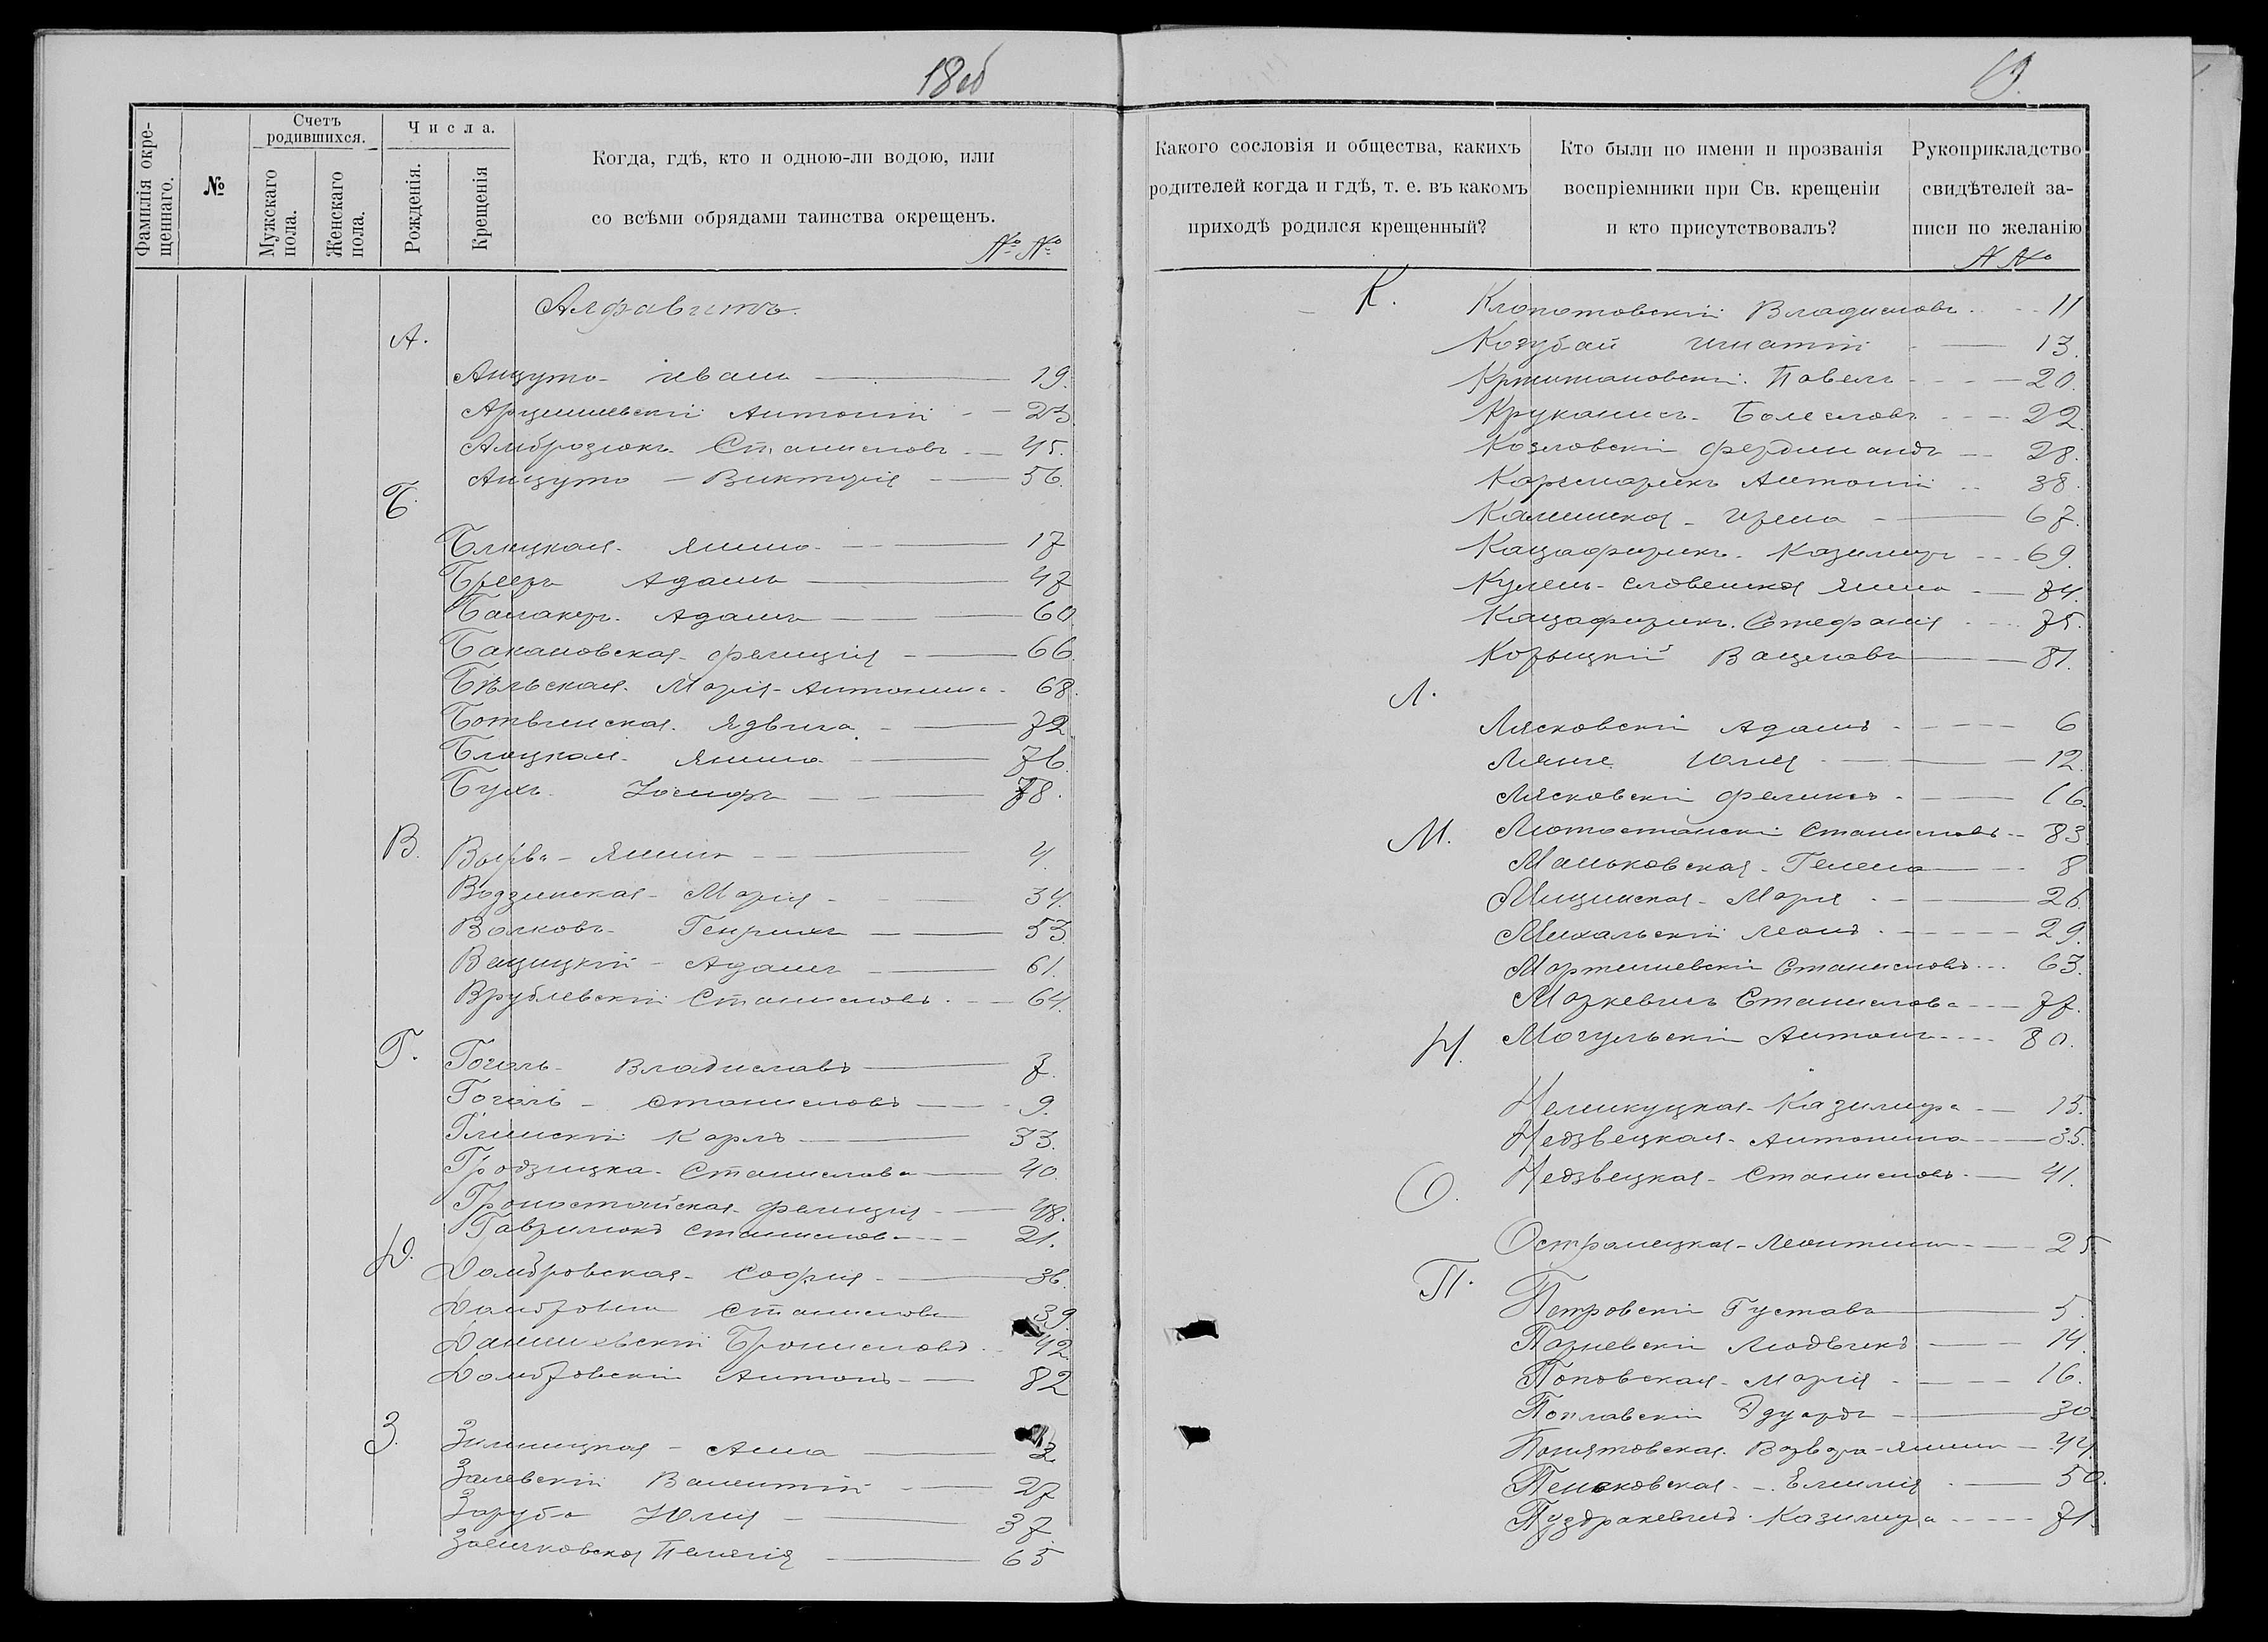 19.
Фамилія окре-
щеннаго.
№
Счетъ
родившихся.
Мужскаго
пола.
Женскаго
пола.
Числа.
Рожденія.
Крещенія
Когда, гдѣ, кто и одною-ли водою, или
со всѣми обрядами таинства окрещенъ.
№ №
Алфавитъ.
А.
Анцуто - Иванъ 19.
Антоній 23
Амброзюкъ Станиславъ 45.
Анцуто - Викторія 56.
Б.
Янина 17
Адамъ 47
Адамъ 60
Бакановская - Фелиція 66
Бѣльская - Марія - Антонина - 68.
Ботвинская - Ядвига 72
Янина 76.
Іосифъ 78.
В.
Янина 4.
Водзинская - Марія 34.
Волковъ - Генрихъ 53.
Адамъ 61.
Врублевскій Станиславъ 64.
Г.
Гоголь - Владиславъ 7.
Гоголь - Станиславъ 9.
Глинскій Карлъ 33.
Гродзицка - Станислава 40.
Гроностайская - Фелиція 48.
Гаврилюкъ 21.
Д.
Домбровская - Софія 36.
39.
Данишевскій Брониславъ 42
Домбровскій Антонъ 82
З.
Анна
Залевскій Валентій 27
Заруба Юлія 37.
65
Какого сословія и общества, какихъ
родителей когда и гдѣ, т. е. въ какомъ
приходѣ родился крещенный?
Кто были по имени и прозванія
воспріемники при Св. крещеніи
и кто присутствовалъ?
Рукоприкладство
свидѣтелей за-
писи по желанію
К.
Клопотовскій Владиславъ 11
Козубай Игнатій 13.
Павелъ 20.
Болеславъ 22.
Козловскій Фердинандъ 28.
Антоній 38.
Калинская - Ирена 67.
Казимиръ 69.
Янина 74.
Стефанія 75.
Корыцкій Вацлавъ 81.
Л.
Лясковскій Адамъ 6
Юлія 12.
Лясковскій Феликсъ 16.
Лютостанскій Станиславъ 83.
М.
Маньковская - Гелена 8
Марія 26.
Михальскій Леонъ 29.
Мартишевскій Станиславъ 63.
Мазкевичъ Станислава 77.
Могульскій Антонъ 80.
Н.
Казимира 15.
Недзвецкая - Антонина 35.
Недзвецкая - Станиславъ 41.
О.
Остромецкая - Леонтина 25.
П.
Петровскій Густавъ 5.
Людвикъ 14.
Поповская - Марія 16.
Поплавскій Эдуардъ 30.
Понятовская - Янина 44.
Пеньковская - Емилія 50.
Пуздракевичъ Казимира 71.